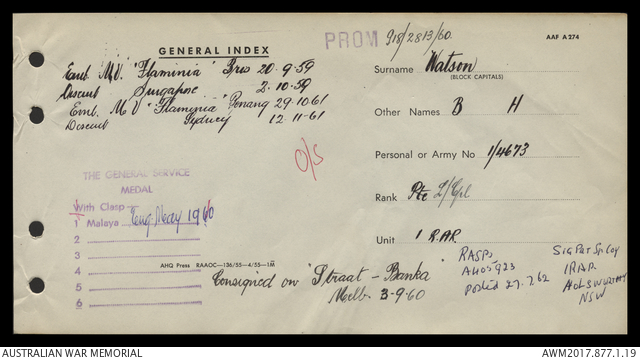 GENERAL INDEX
PROM 918/2813/60.
AAF A274
Emb. M.V. "Flaminia" Bris 20-9-59
Disemb Singapore 2-10-59
Emb. M V "Flaminia" Penang 29.10.61
Disemb Sydney 12-11-61
Surname Watson
(BLOCK CAPITALS)
Other Names B H
O/S
Personal or Army No 1/4673
THE GENERAL SERVICE
MEDAL
With Clasp
1 Malaya May 1960
2
3
4
5
6
Rank Pte L/Cpl
Unit 1 R.A.R.
AHQ Press RAAOC—136/55—4/55—1M
Consigned on "Straat - Banka"
Melb. 3-9-60
RASPs
A405923
posted 27.7.62
Sig Pat Sp Coy
1RAR
HOLSWORTHY
NSW
AUSTRALIAN WAR MEMORIAL
AWM2017.877.1.19